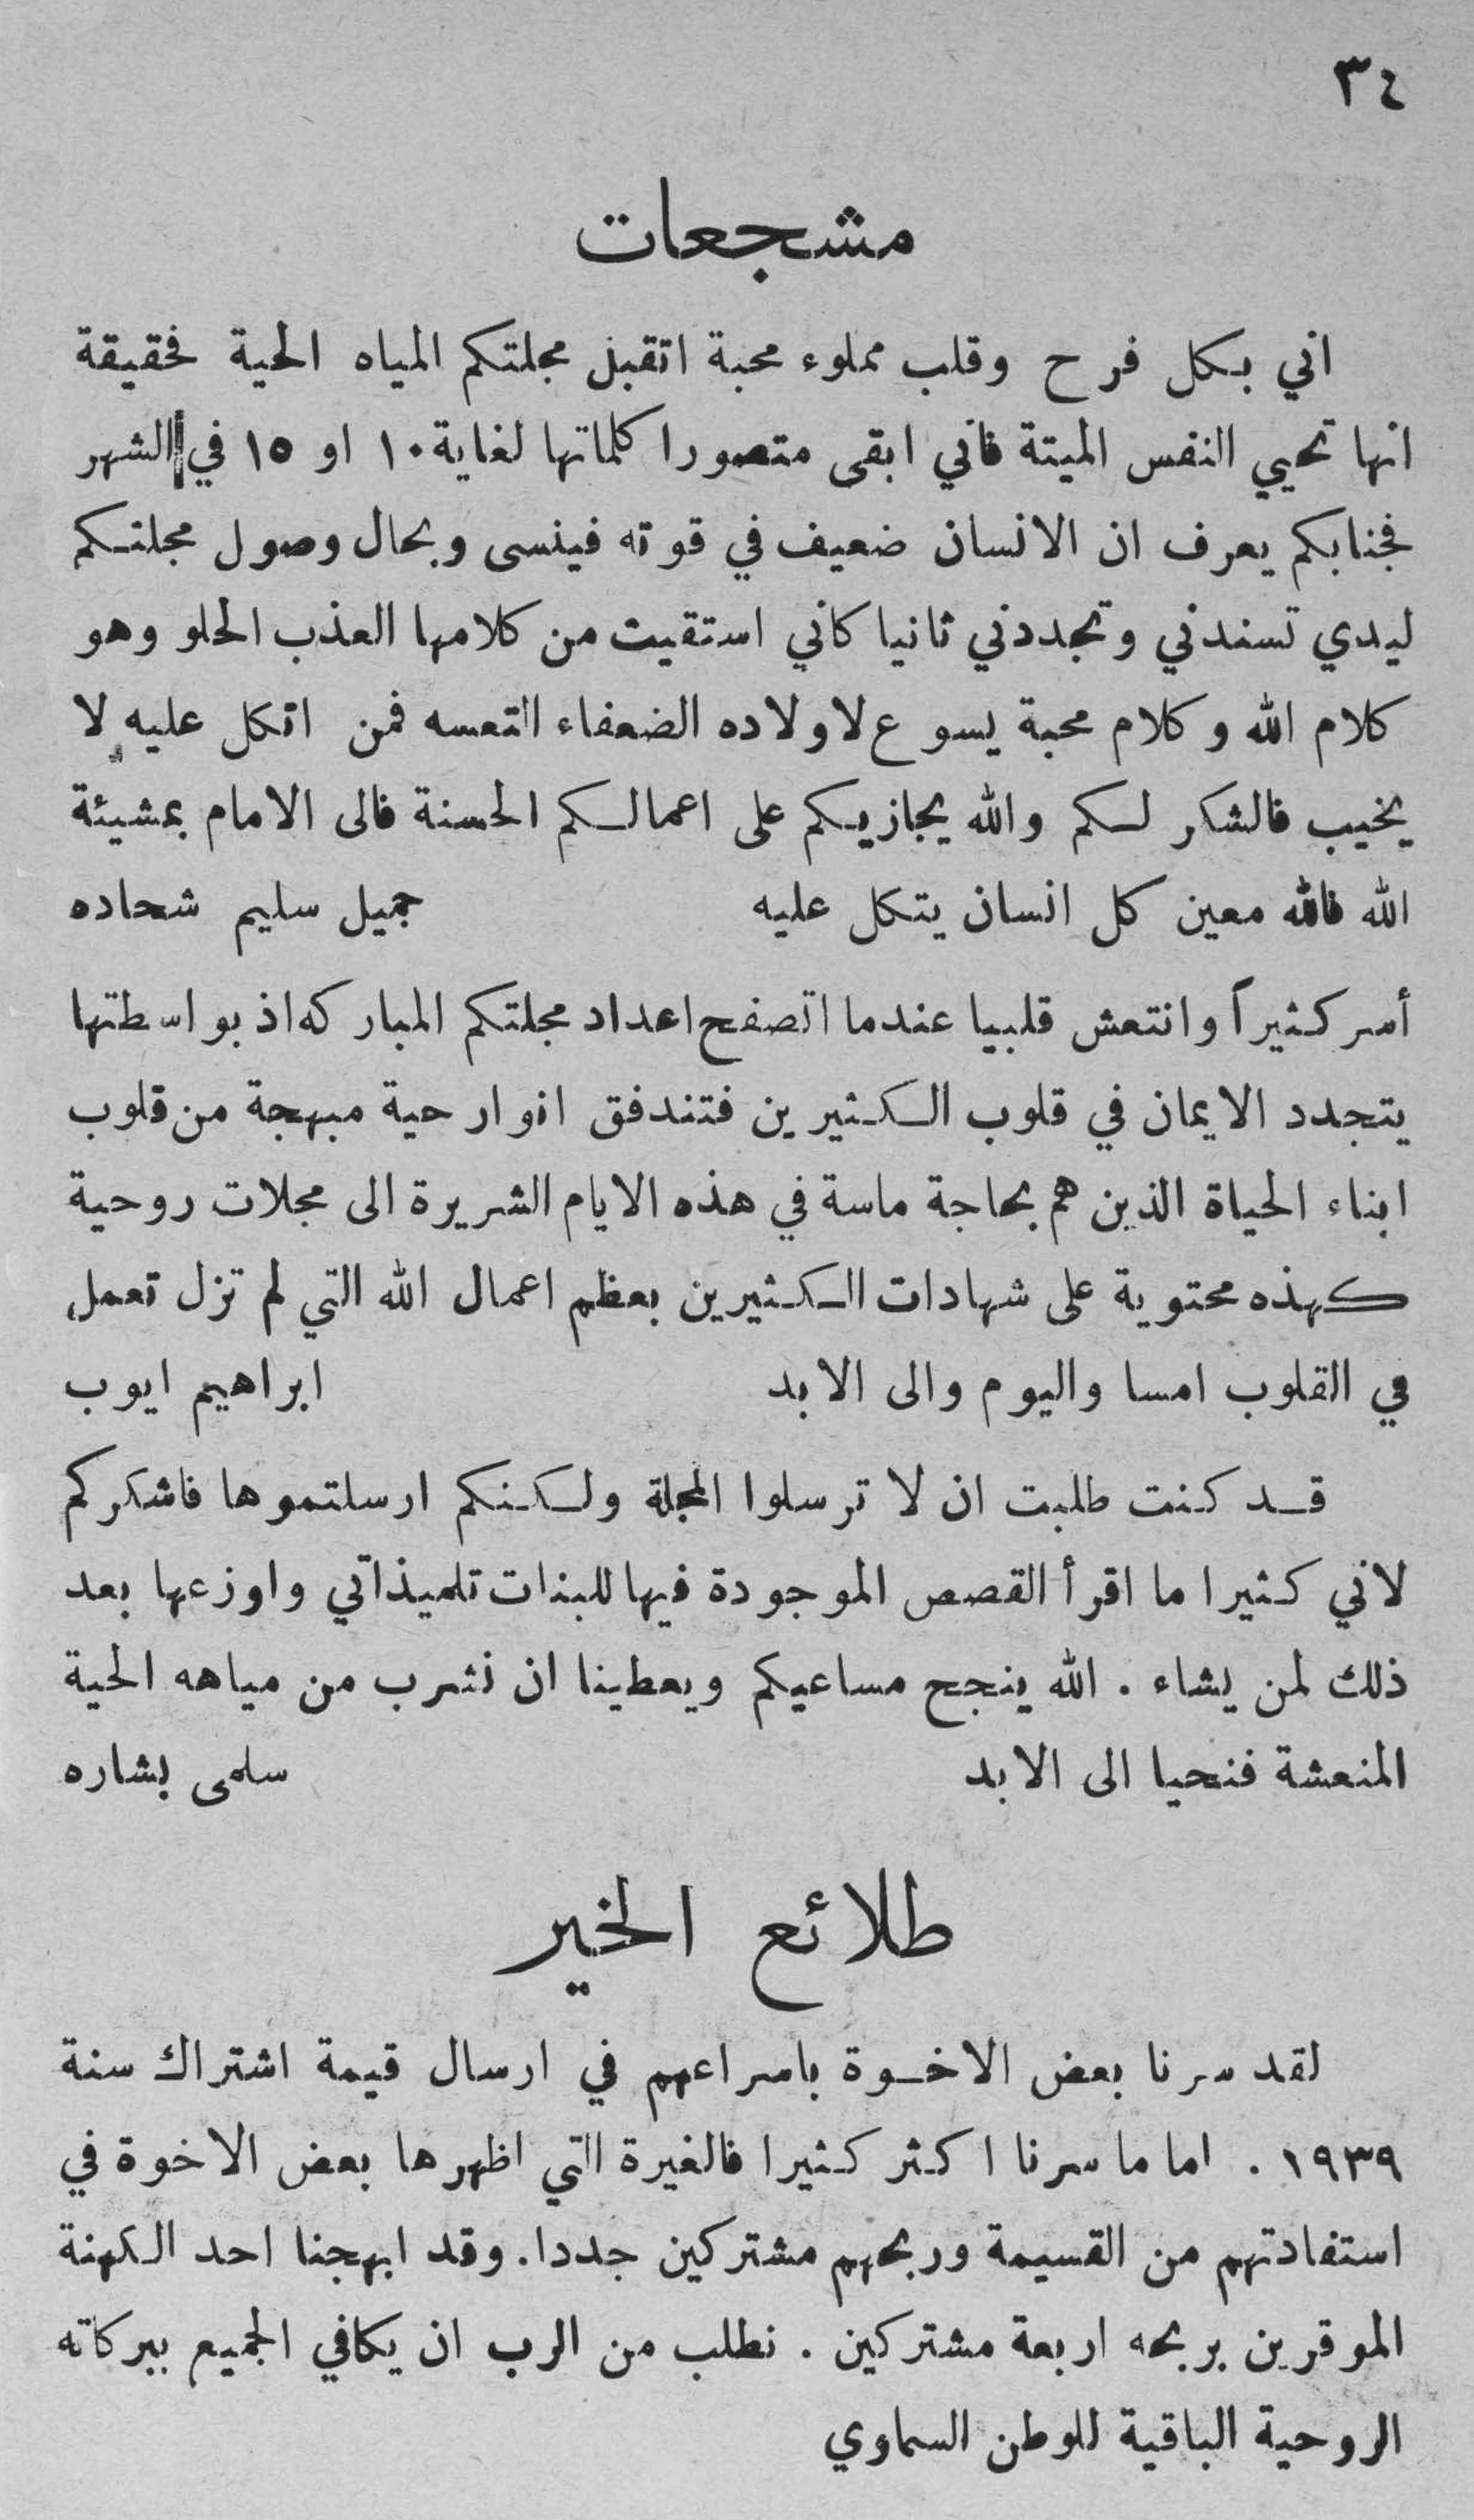 ٣٤
مشجعات
اني بكل فرح وقلب مملوء محبة اتقبل مجلتكم المياه الحية فحقيقة
انها تحيي النفس الميتة فاني ابقى متصورا كلماتها لغاية ١٠ او ١٥ في الشهر
فجنابكم يعرف ان الانسان ضعيف في قوته فينسى وبحال وصول مجلتكم
ليدي تسندني وتجددني ثانيا كاني استقيت من كلامها العذب الحلو وهو
كلام الله وكلام محبة يسوع لاولاده الضعفاء التعسه فمن اتكل عليه لا
يخيب فالشكر لكم والله يجازيكم على اعمالكم الحسنة فالى الامام بمشيئة
الله فالله معين كل انسان يتكل عليه جميل سليم شحاده
أسر كثيراً وانتعش قلبيا عندما اتصفح اعداد مجلتكم المباركه اذ بواسطتها
يتجدد الايمان في قلوب الكثيرين فتندفق انوار حية مبهجة من قلوب
ابناء الحياة الذين هم بحاجة ماسة في هذه الايام الشريرة الى مجلات روحية
كهذه محتوية على شهادات الكثيرين بعظم اعمال الله التي لم تزل تعمل
في القلوب امسا واليوم والى الابد ابراهيم ايوب
قد كنت طلبت ان لا ترسلوا المجلة ولكنكم ارسلتموها فاشكركم
لاني كثيرا ما اقرأ القصص الموجودة فيها للبنات تلميذاتي واوزعها بعد
ذلك لمن يشاء . الله ينجح مساعيكم ويعطينا ان نشرب من مياهه الحية
المنعشة فنحيا الى الابد سلمى بشاره
طلائع الخير
لقد سرنا بعض الاخوة باسراعهم في ارسال قيمة اشتراك سنة
١٩٣٩ . اما ما سرنا اكثر كثيرا فالغيرة التي اظهرها بعض الاخوة في
استفادتهم من القسيمة وربحهم مشتركين جددا. وقد ابهجنا احد الكهنة
الموقرين بربحه اربعة مشتركين . نطلب من الرب ان يكافي الجميع ببركاته
الروحية الباقية للوطن السماوي